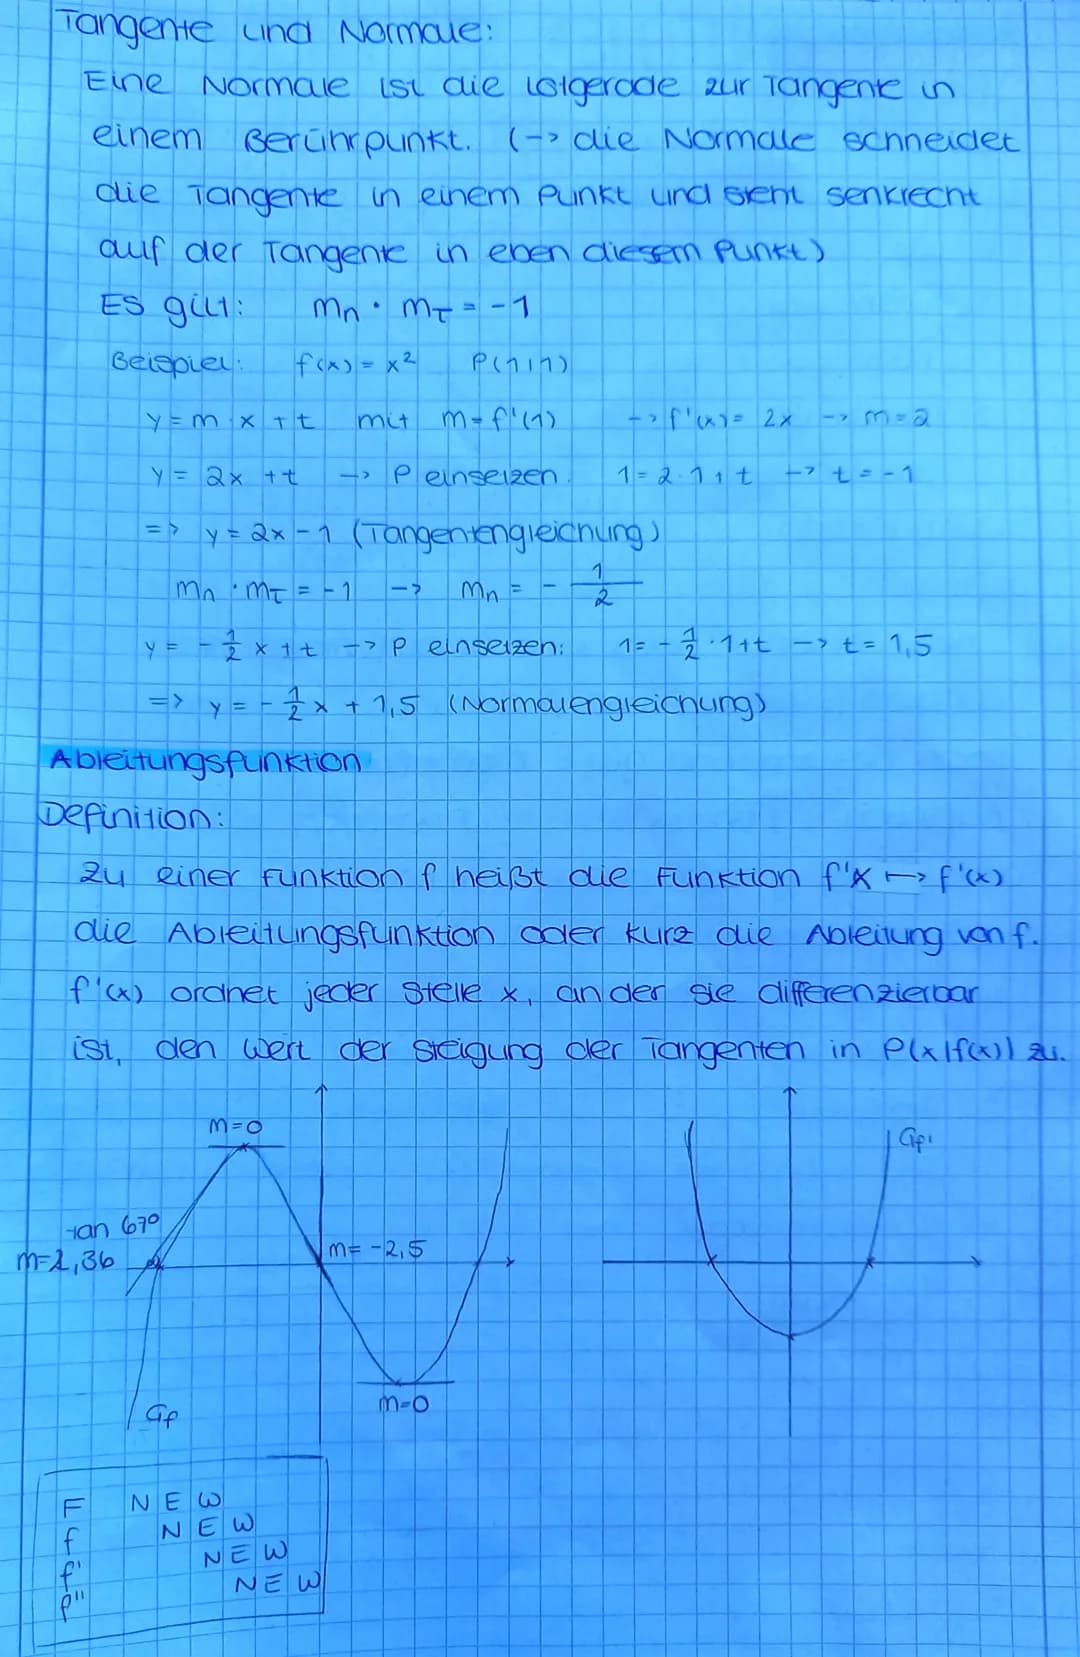 Tangente und Normale:
Eine Normale ist die Lotgerade zur Tangente in
einem Berührpunkt. (-> die Normale schneidet
die Tangente in einem Punkt und steht senkrecht
auf der Tangente in eben diesem Punkt)
ES gilt: mn · mT = -1
Beispiel: f(x) = x² P(1|1)
y = m · x + t mit m = f'(1) -> f'(x) = 2x -> m = 2
y = 2x + t -> P einsetzen: 1 = 2 · 1 + t -> t = -1
=> y = 2x - 1 (Tangentengleichung)
mn · mT = -1 -> mn = - 1/2
y = - 1/2 x + t -> P einsetzen: 1 = - 1/2 · 1 + t -> t = 1,5
=> y = - 1/2 x + 1,5 (Normalengleichung)
Ableitungsfunktion
Definition:
Zu einer Funktion f heißt die Funktion f'x ↦ f'(x)
die Ableitungsfunktion oder kurz die Ableitung von f.
f'(x) ordnet jeder Stelle x, an der sie differenzierbar
ist, den Wert der Steigung der Tangenten in P(x|f(x)) zu.
m=0
Gf'
tan 67°
m=2,36
m= -2,5
m=0
Gf
F N E W
f N E W
f' N E W
f'' N E W